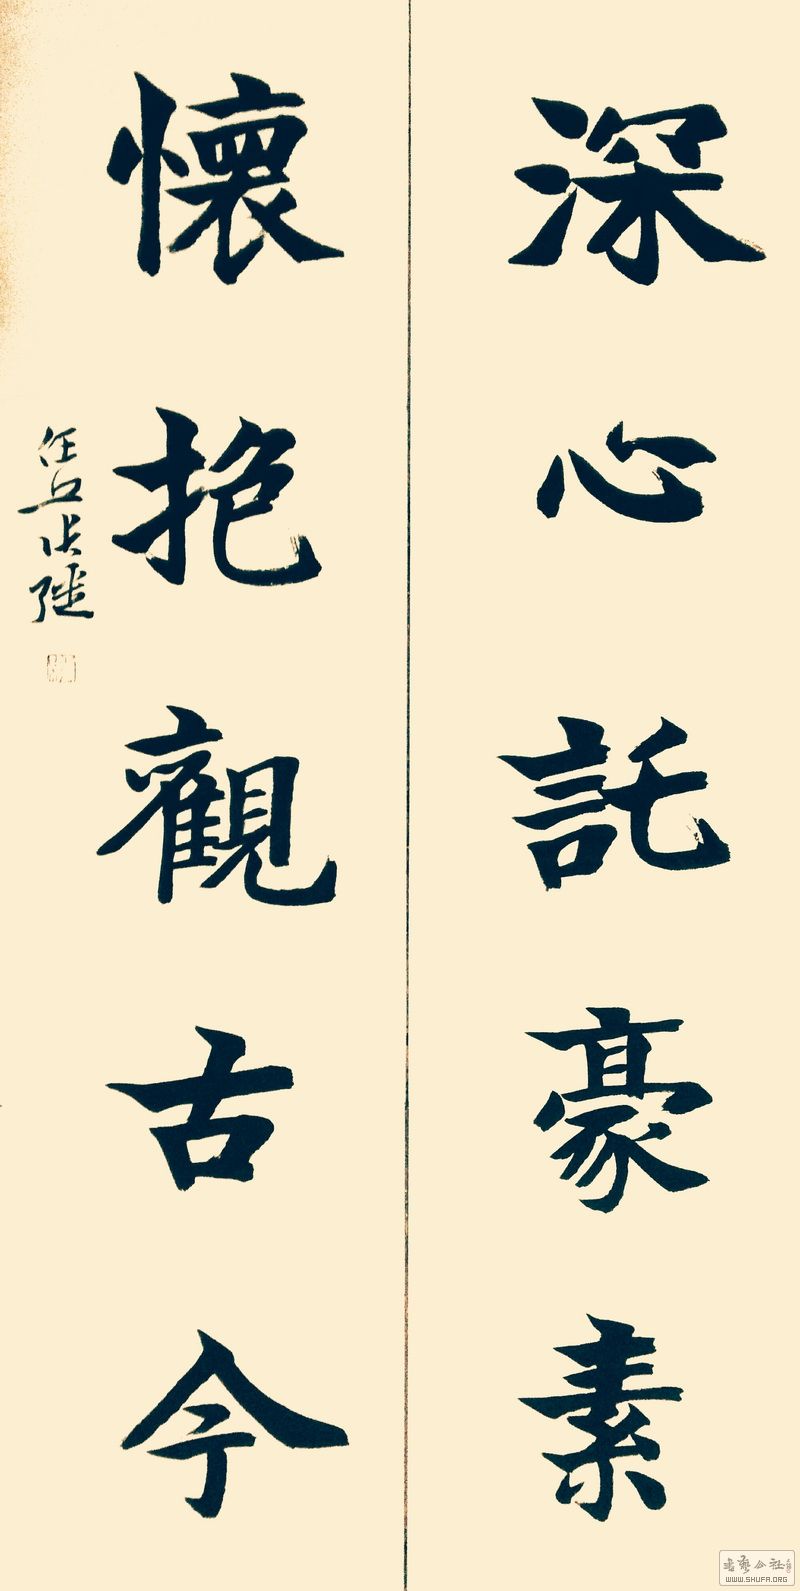 深心託豪素
懷抱觀古今
任丘張
書艺公社
WWW.SHUFA.ORG